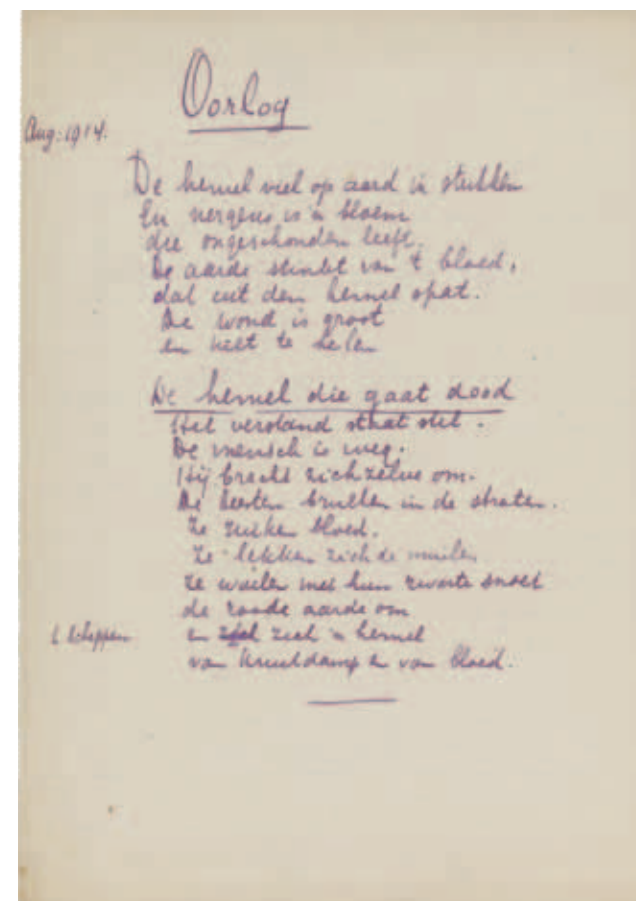 Oorlog
Aug: 1914.
De hemel viel op aard in stukken
En nergens is 'n bloem
die ongeschonden leeft.
De aarde stinkt van 't bloed,
dat uit den hemel spat.
De wond is groot
en niet te helen
De hemel die gaat dood
Het verstand staat stil.
De mensch is weg.
Hij bracht zichzelve om.
De beesten brullen in de straten.
Ze zuiken bloed.
Ze likken zich de muilen
Ze woelen met hun zwarte snoet
de roode aarde om
en zich 'n hemel
scheppen
van kruitdamp en van bloed.